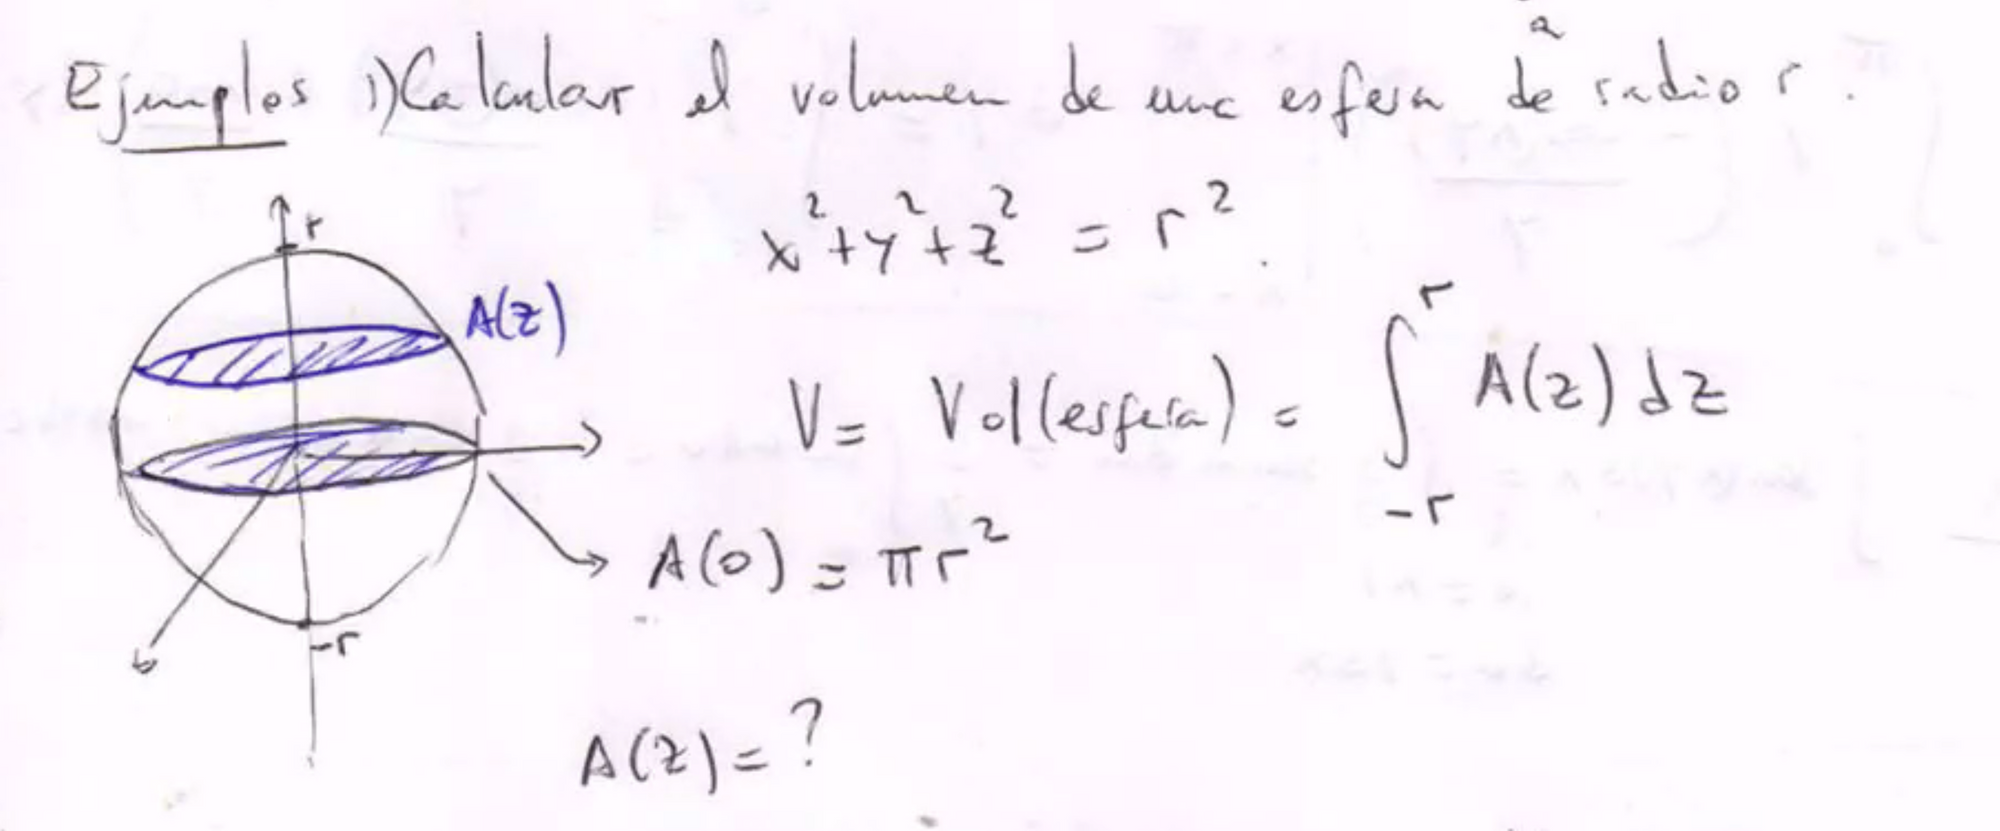 Ejemplos 1) Calcular el volumen de una esfera de radio r.
x²+y²+z² = r².
r
A(z)
V = Vol(esfera) = ∫_{-r}^{r} A(z) dz
A(0) = πr²
-r
A(z) = ?